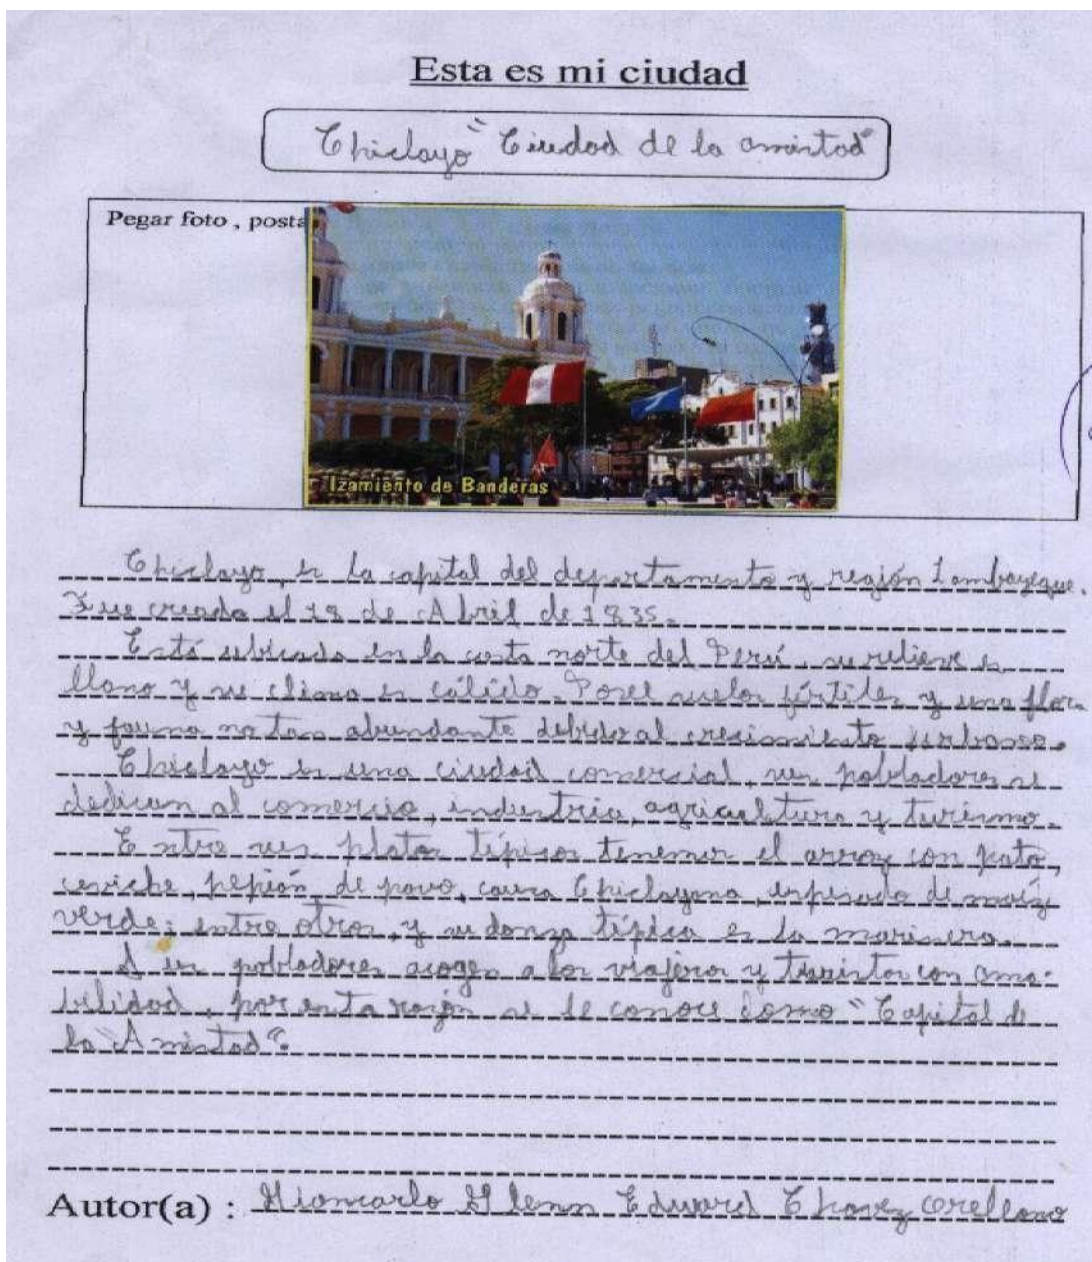 Esta es mi ciudad
Chiclayo "Ciudad de la amistad"
Pegar foto , posta
Izamiento de Banderas
Chiclayo, es la capital del departamento y región Lambayeque.
Fue creada el 18 de Abril de 1835.
Está ubicada en la costa norte del Perú, su relieve es
llano y su clima es cálido. Posee suelos fértiles y una flora
y fauna no tan abundante debido al crecimiento urbano.
Chiclayo es una ciudad comercial, sus pobladores se
dedican al comercio, industria, agricultura y turismo.
Entre sus platos típicos tenemos el arroz con pato,
ceviche, pepián de pavo, causa Chiclayana, espesado de maíz
verde; entre otros, y su danza típica es la marinera.
Sus pobladores acogen a los viajeros y turistas con ama-
bilidad, por esta razón se le conoce como "Capital de
la Amistad".
Autor(a) : Giancarlo Glenn Edward Chavez Orellano